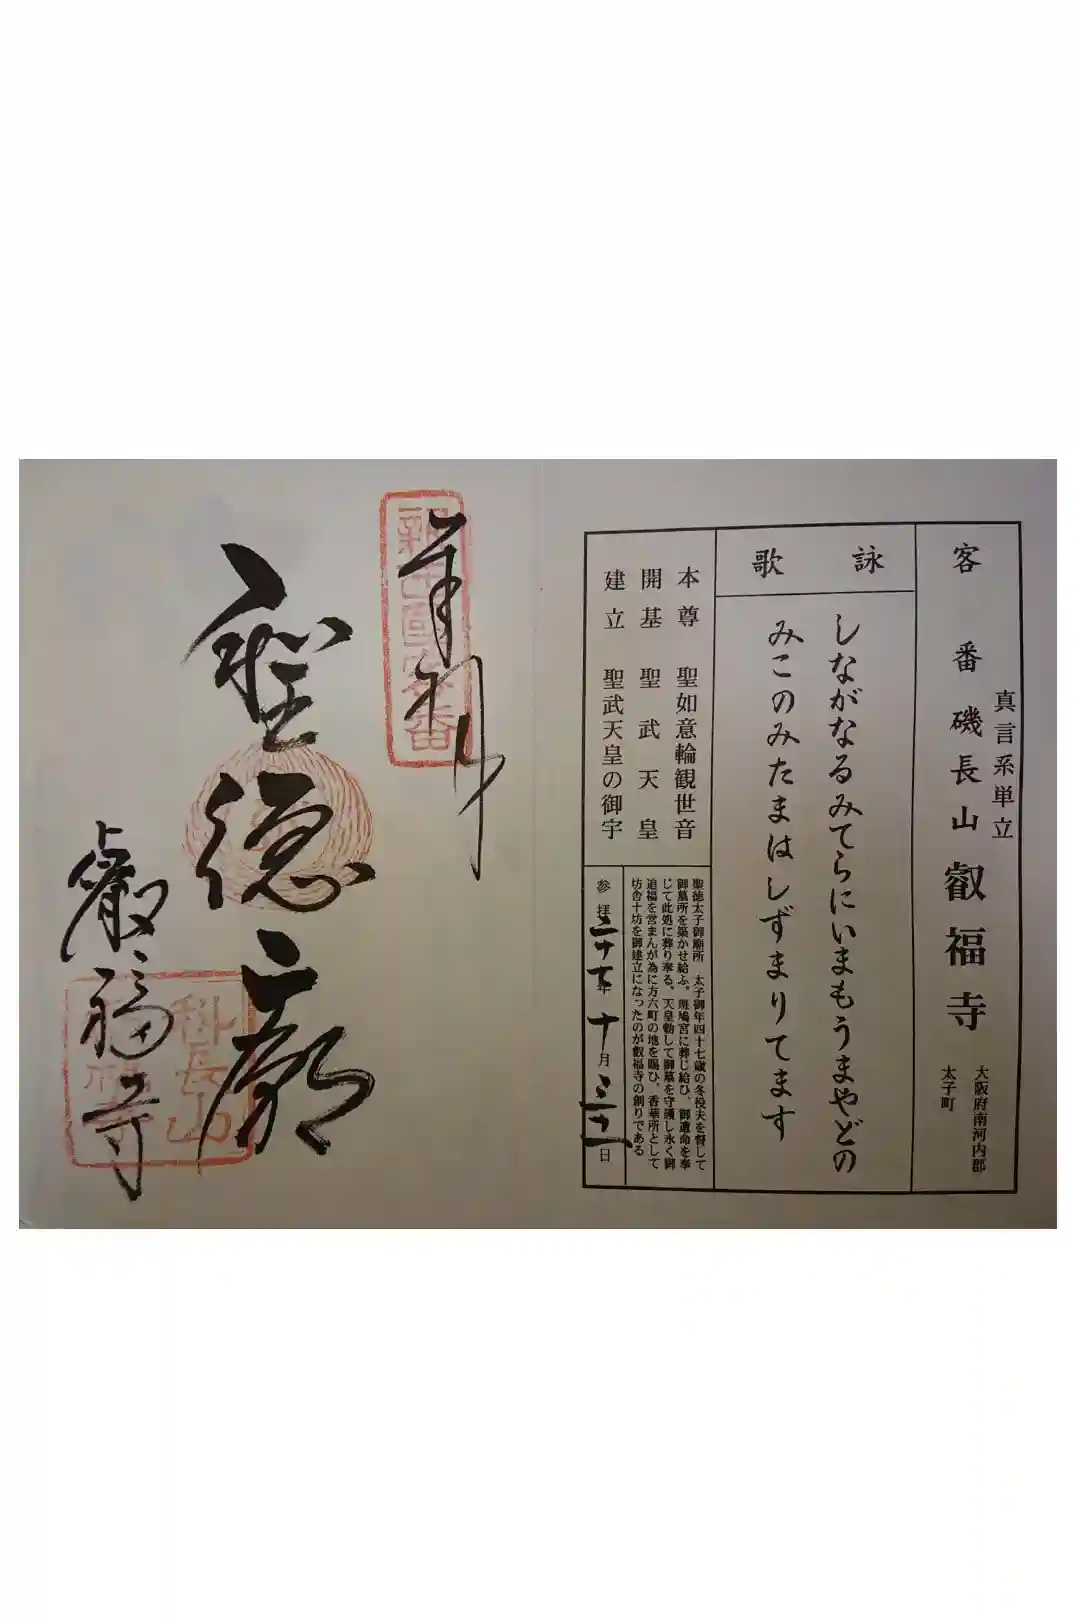 真言系単立
客番 磯長山 叡福寺
大阪府南河内郡
太子町
詠歌
しながなるみてらにいまもうまやどの
みこのみたまはしずまりてます
本尊 聖如意輪観世音
開基 聖武天皇
建立 聖武天皇の御宇
聖徳太子御廟所 太子御年四十七歳の冬役夫を督して
御墓所を築かせ給ふ。斑鳩宮に葬じ給ひ、御遺命を奉
じて此処に葬り奉る。天皇勅して御墓を守護し永く御
追福を営まんが為に方六町の地を賜ひ、香華所として
坊舎十坊を御建立になったのが叡福寺の創りである
参拝 二十七年 十月 三十一日
奉拝
聖徳廟
叡福寺